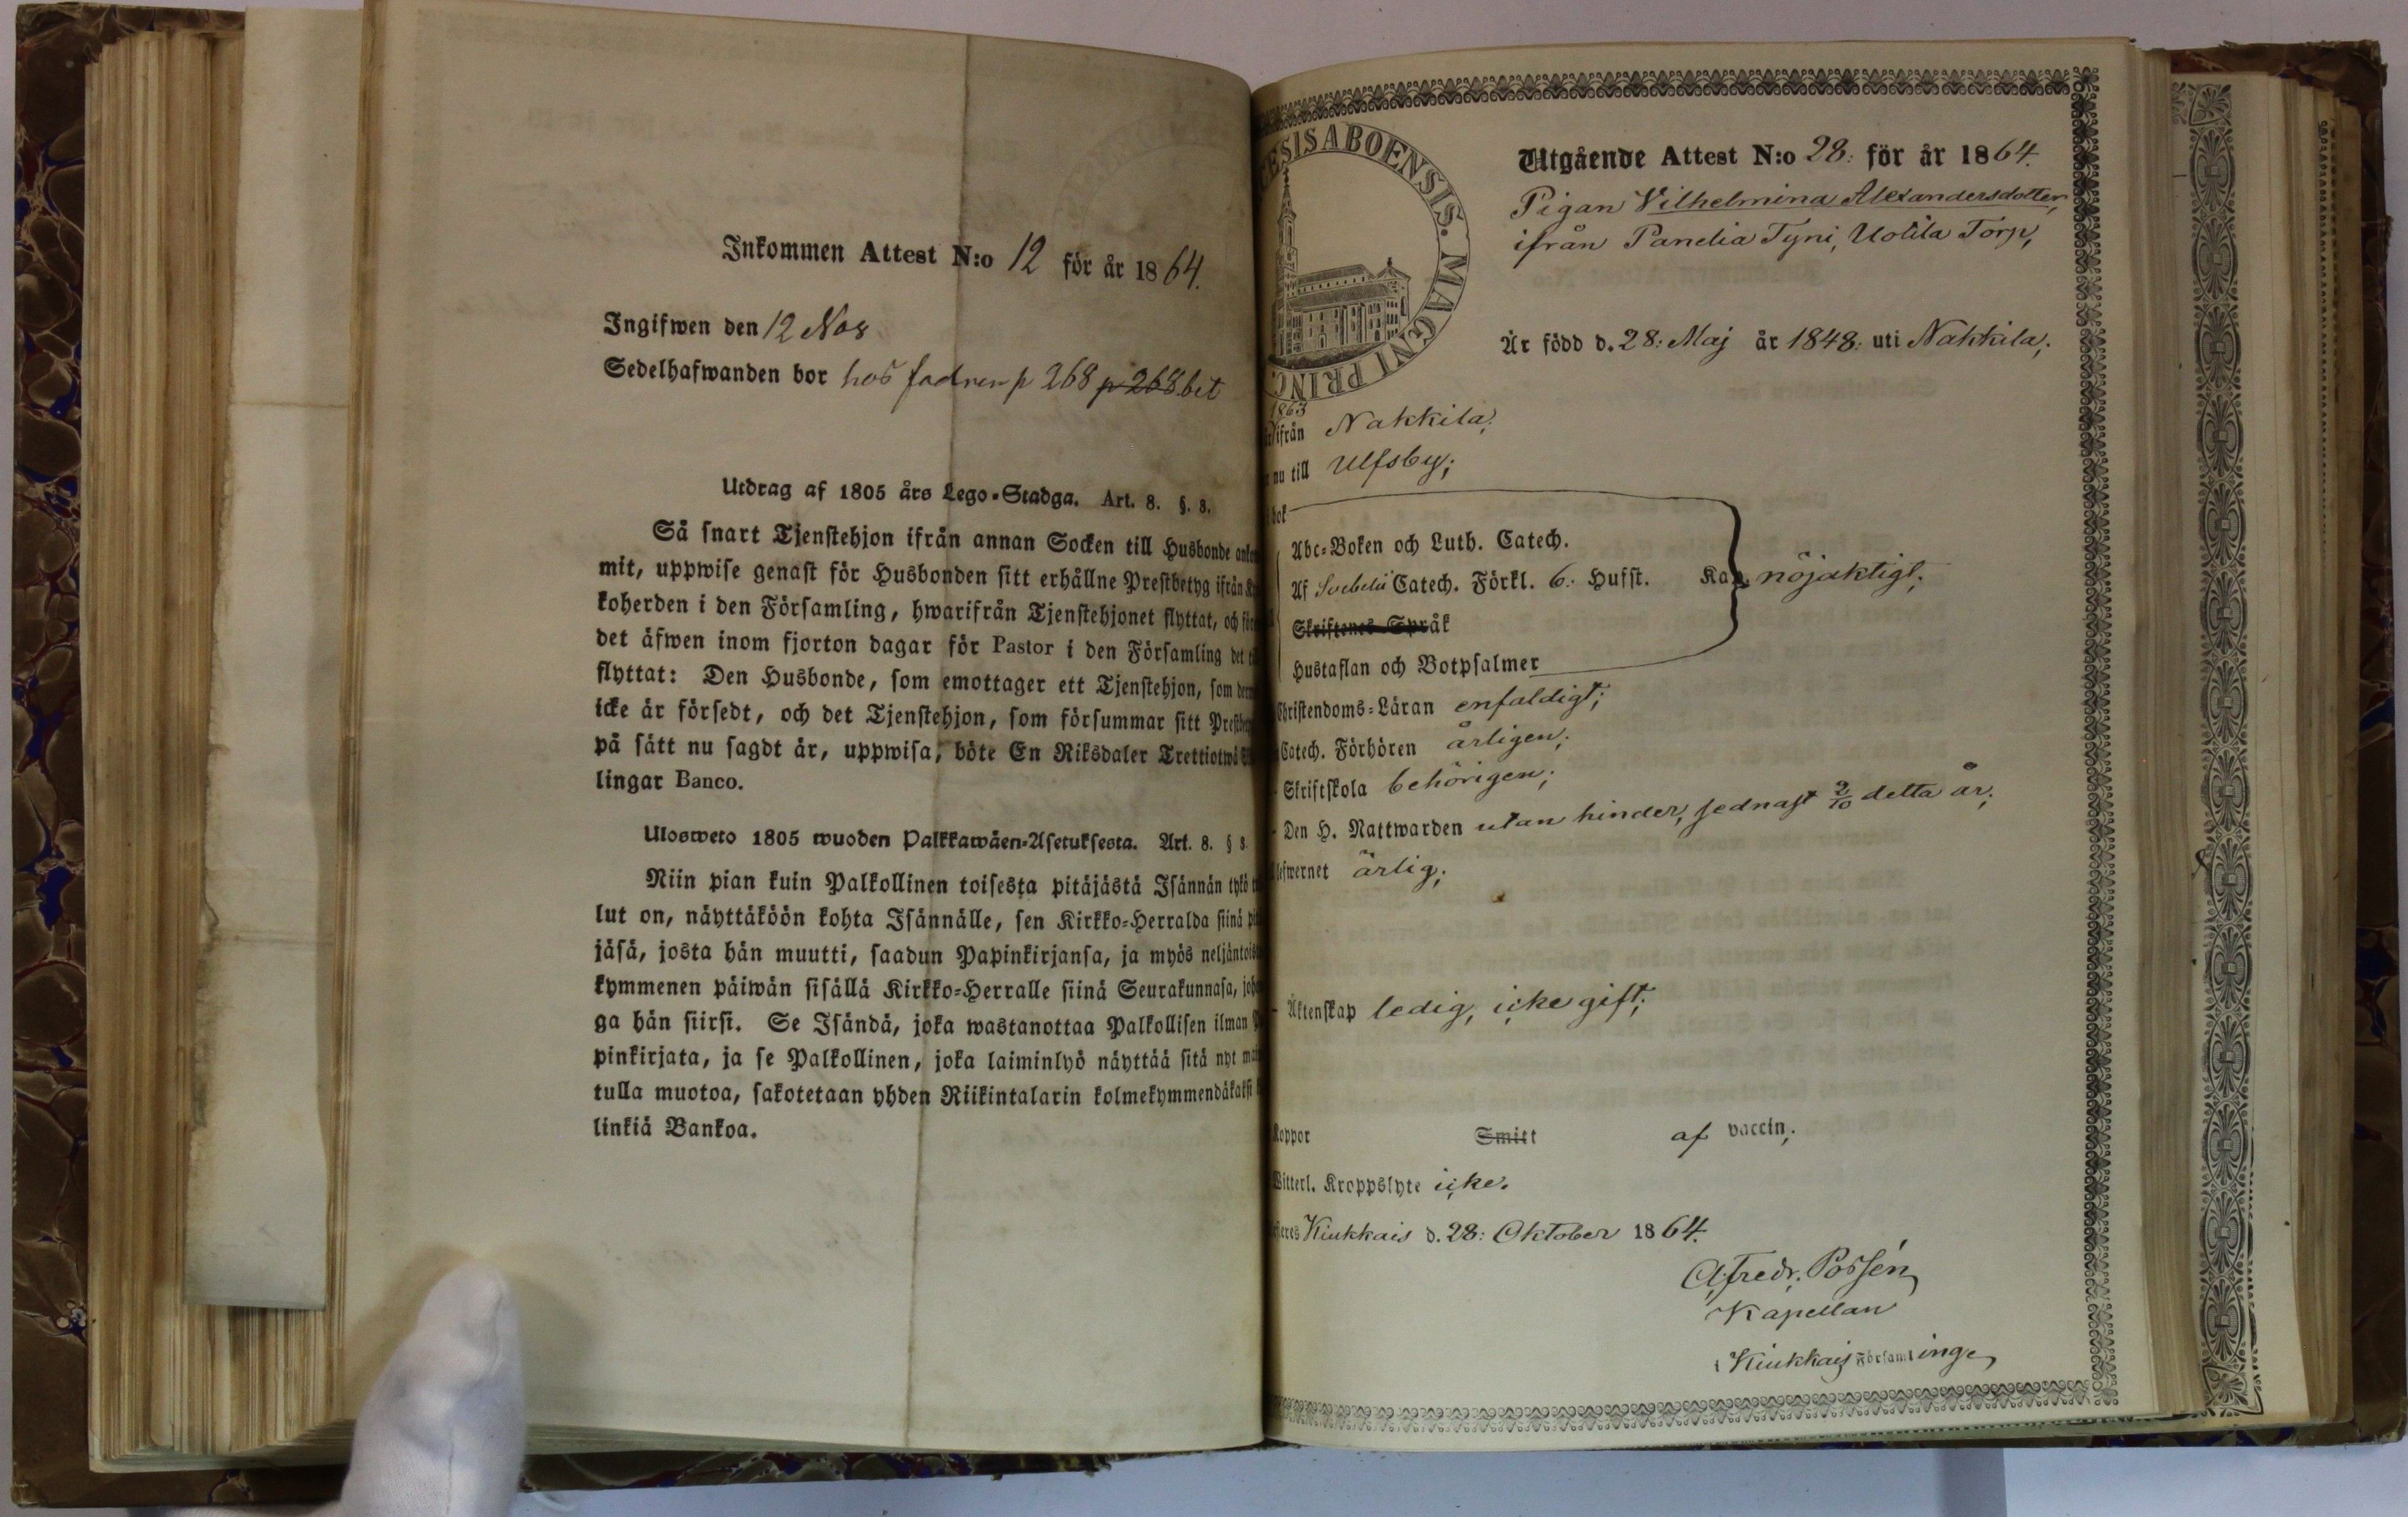 Inkommen Attest N:o 12 för år 1864.
Ingifwen den 12 Nov
Sedelhafwanden bor hos fadren p 268 p 268 bit
Utdrag af 1805 års Lego-Stadga. Art. 8. §. 8.
Så snart Tjenstehjon ifrån annan Socken till Husbonde
mit, uppwise genast för Husbonden sitt erhållne Prestbetyg ifrån
koherden i den Församling, hwarifrån Tjenstehjonet flyttat, och
det äfwen inom fjorton dagar för Pastor i den Församling det
flyttat: Den Husbonde, som emottager ett Tjenstehjon, som
icke är försedt, och det Tjenstehjon, som försummar sitt
på sätt nu sagdt är, uppwisa, böte En Riksdaler Trettiotwå
lingar Banco.
Ulosweto 1805 wuoden Palkkawäen-Asetuksesta. Art. 8. § 8
Niin pian kuin Palkollinen toisesta pitäjästä Isännän tykö
lut on, näyttäköön kohta Isännälle, sen Kirkko-Herralda siinä
jäsä, josta hän muutti, saadun Papinkirjansa, ja myös
kymmenen päiwän sisällä Kirkko-Herralle siinä Seurakunnasa,
ga hän siirsi. Se Isändä, joka wastanottaa Palkollisen ilman
pinkirjata, ja se Palkollinen, joka laiminlyö näyttää sitä nyt
tulla muotoa, sakotetaan yhden Riikintalarin kolmekymmendäkaksi
linkiä Bankoa.
ESISABOENSIS. MAGNI PRINC.
Utgående Attest N:o 28: för år 1864.
Pigan Vilhelmina Alexandersdotter,
ifrån Panelia Tyni, Uotila Torp,
Är född d. 28: Maj år 1848: uti Nakkila;
1863
ifrån Nakkila;
nu till Ulfsby;
bok
Abc-Boken och Luth. Catech.
Af Svebelii Catech. Förkl. 6: Hufst. Kap. nöjaktigt;
Skriftenes Språk
Hustaflan och Botpsalmer
Christendoms-Läran enfaldigt;
Catech. Förhören årligen;
Skriftskola behörigen;
Den H. Nattwarden utan hinder, sednast 2/10 detta år;
lefwernet ärlig;
Äktenskap ledig, icke gift;
Koppor Smitt af vaccin;
Witterl. Kroppslyte icke.
Kiukkais d. 28: Oktober 1864.
Kapellan
i Kiukkais Församlinge